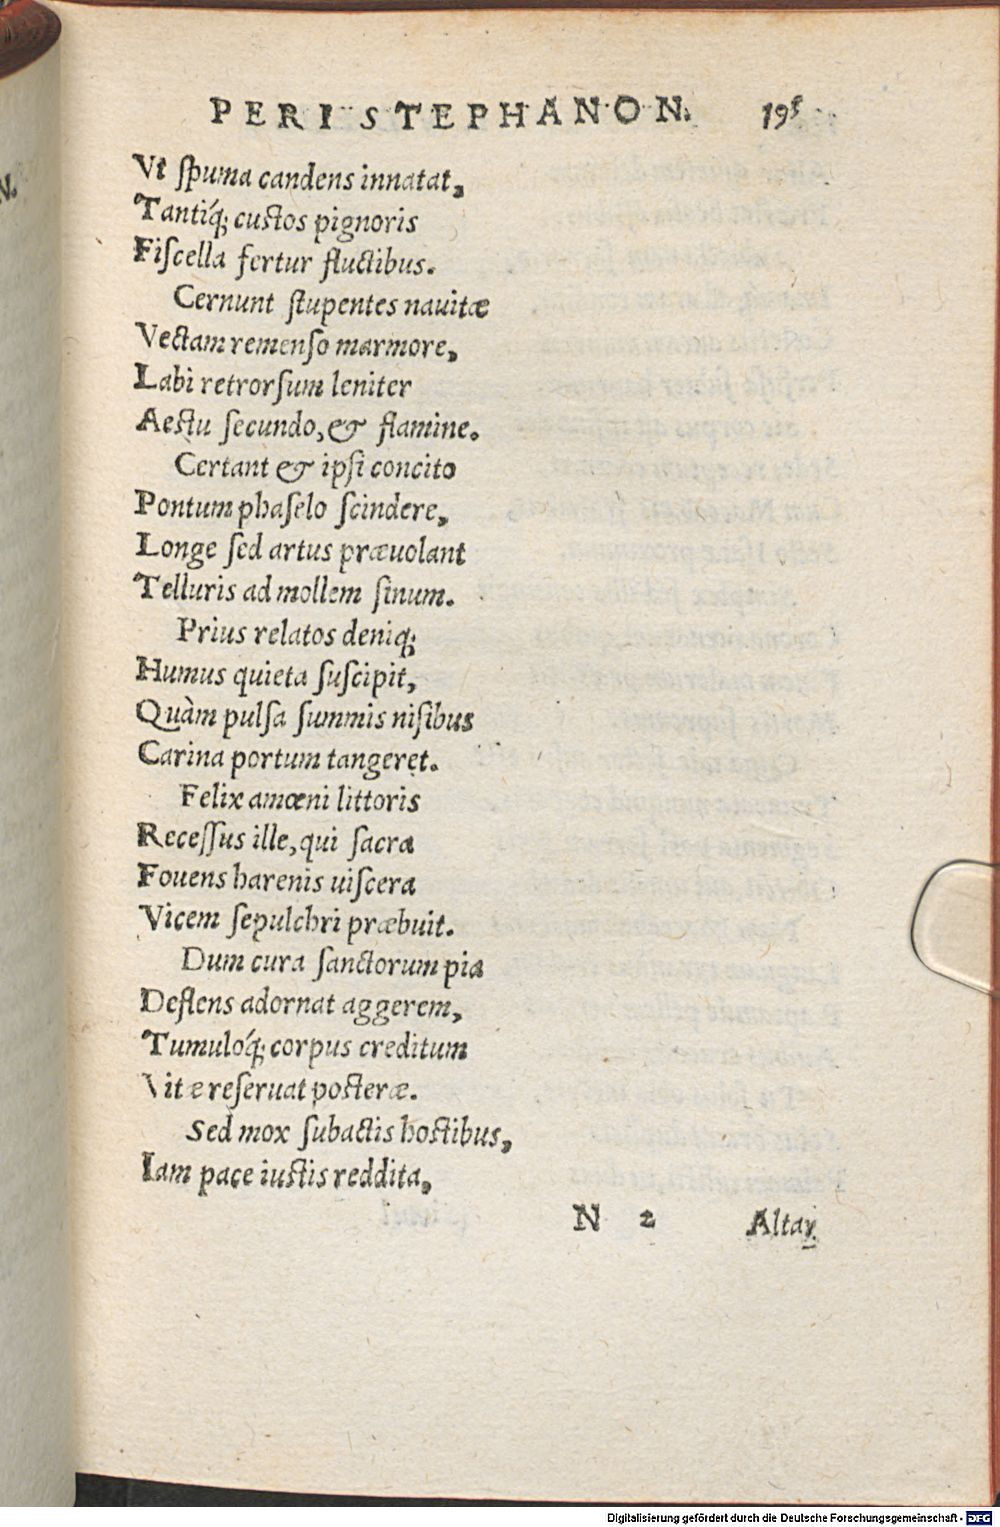 PERI STEPHANON. 195
Vt ſpuma candens innatat,
Tantiq́; cuſtos pignoris
Fiſcella fertur fluctibus.
Cernunt ſtupentes nauitæ
Vectam remenſo marmore,
Labi retrorſum leniter
Aeſtu ſecundo, & flamine.
Certant & ipſi concito
Pontum phaſelo ſcindere,
Longe ſed artus præuolant
Telluris ad mollem ſinum.
Prius relatos deniq;
Humus quieta ſuſcipit,
Quàm pulſa ſummis niſibus
Carina portum tangeret.
Felix amœni littoris
Receſſus ille, qui ſacra
Fouens harenis uiſcera
Vicem ſepulchri præbuit.
Dum cura ſanctorum pia
Deflens adornat aggerem,
Tumulóq́; corpus creditum
Vitæ reſeruat poſteræ.
Sed mox ſubactis hoſtibus,
Iam pace iuſtis reddita,
N 2 Altar
Digitalisierung gefördert durch die Deutsche Forschungsgemeinschaft - DFG